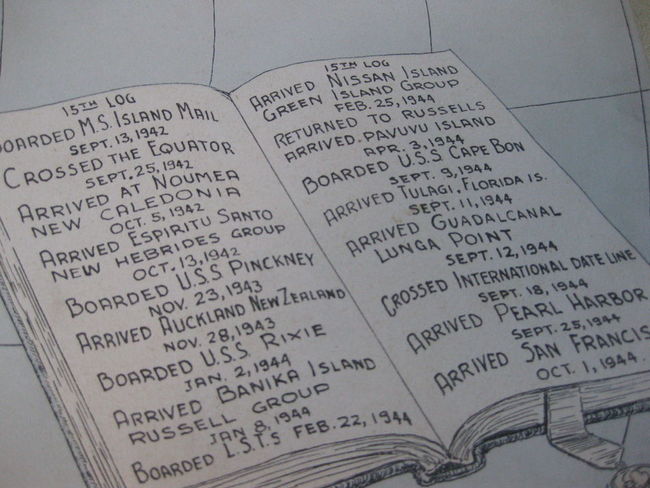 15TH LOG
BOARDED M.S. ISLAND MAIL
SEPT. 13, 1942
CROSSED THE EQUATOR
SEPT. 25, 1942
ARRIVED AT NOUMEA
NEW CALEDONIA
OCT. 5, 1942
ARRIVED ESPIRITU SANTO
NEW HEBRIDES GROUP
OCT. 13, 1942
BOARDED U.S.S PINCKNEY
NOV. 23, 1943
ARRIVED AUCKLAND NEW ZEALAND
NOV. 28, 1943
BOARDED U.S.S. RIXIE
JAN. 2, 1944
ARRIVED BANIKA ISLAND
RUSSELL GROUP
JAN 8, 1944
BOARDED L.S.T.S FEB. 22, 1944
15TH LOG
ARRIVED NISSAN ISLAND
GREEN ISLAND GROUP
FEB. 25, 1944
RETURNED TO RUSSELLS
ARRIVED-PAVUVU ISLAND
APR. 3, 1944
BOARDED U.S.S CAPE BON
SEPT. 9, 1944
ARRIVED TULAGI, FLORIDA IS.
SEPT. 11, 1944
ARRIVED GUADALCANAL
LUNGA POINT
SEPT. 12, 1944
CROSSED INTERNATIONAL DATE LINE
SEPT. 18, 1944
ARRIVED PEARL HARBOR
SEPT. 25, 1944
ARRIVED SAN FRANCIS
OCT. 1, 1944.